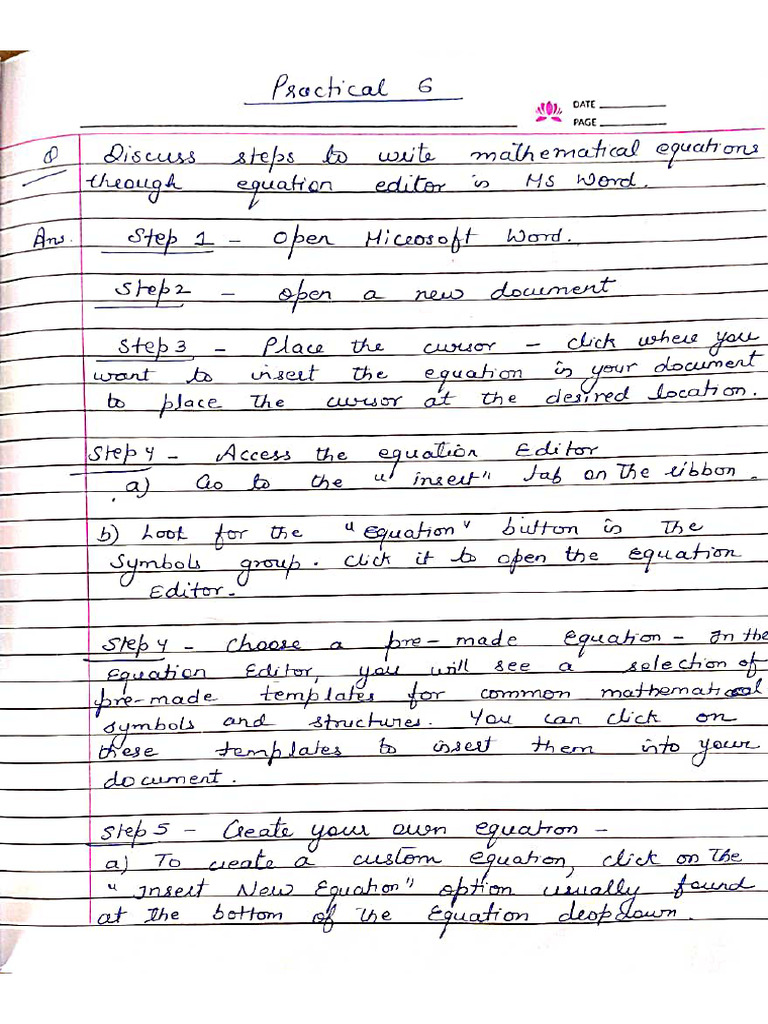 Practical 6
DATE
PAGE
Q Discuss steps to write mathematical equations
through equation editor in MS Word.
Ans. Step 1 - Open Microsoft Word.
Step 2 - Open a new document
Step 3 - Place the cursor - click where you
want to insert the equation in your document
to place the cursor at the desired location.
Step 4 - Access the equation Editor
a) Go to the "insert" tab on the ribbon.
b) Look for the "Equation" button in the
Symbols group. Click it to open the equation
Editor.
Step 4 - Choose a pre-made equation - In the
Equation Editor, you will see a selection of
pre-made templates for common mathematical
symbols and structures. You can click on
these templates to insert them into your
document.
Step 5 - Create your own equation -
a) To create a custom equation, click on the
"Insert New Equation" option usually found
at the bottom of the Equation dropdown.